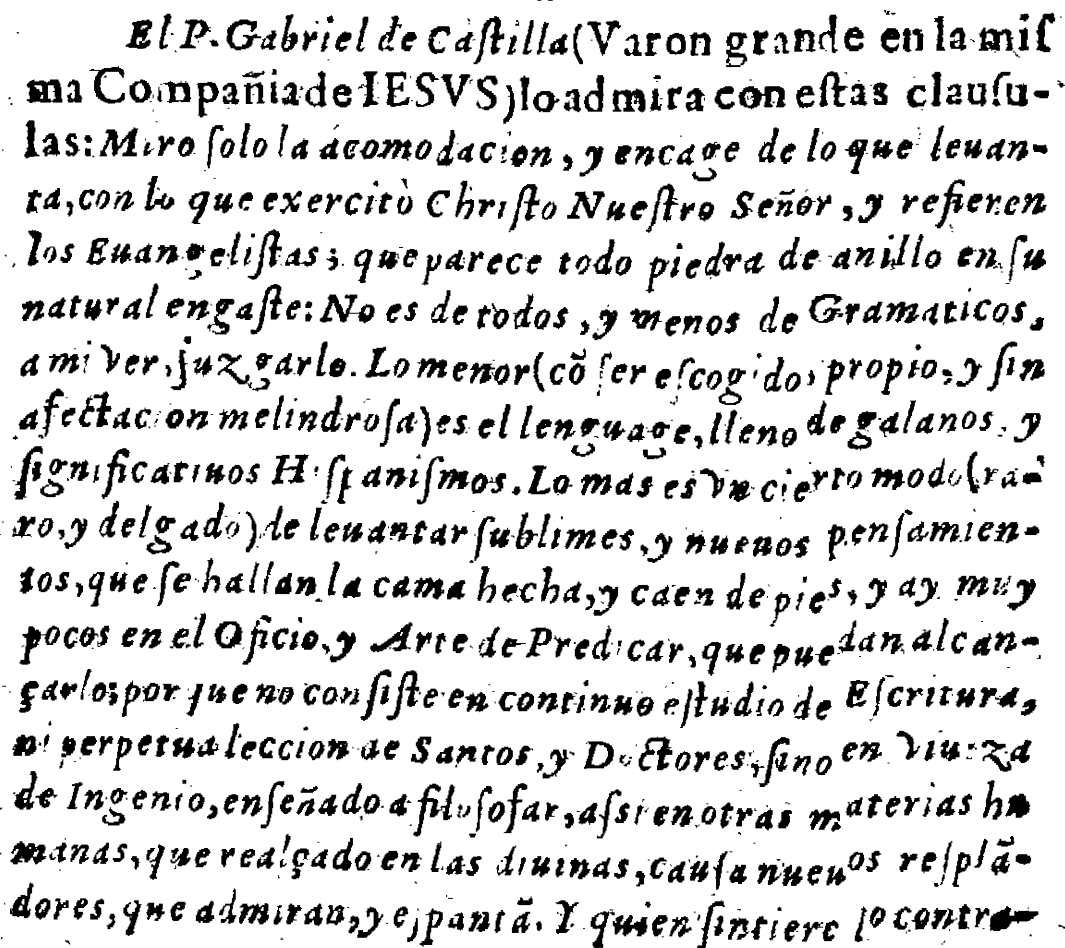 El P. Gabriel de Caſtilla (Varon grande en la miſ
ma Compañia de IESVS) lo admira con eſtas clauſu-
las: Miro ſolo la acomodacion, y encage de lo que leuan-
ta, con lo que exercitò Chriſto Nueſtro Señor, y refieren
los Euangeliſtas; que parece todo piedra de anillo en ſu
natural engaſte: No es de todos, y menos de Gramaticos,
a mi ver, juzgarlo. Lo menor (cõ ſer eſcogido, propio, y ſin
afectacion melindroſa) es el lenguage, lleno de galanos, y
ſignificatiuos Hiſpaniſmos. Lo mas es vn cierto modo (ra-
ro, y delgado) de leuantar ſublimes, y nueuos penſamien-
tos, que ſe hallan la cama hecha, y caen de pies, y ay muy
pocos en el Oficio, y Arte de Predicar, que puedan alcan-
çarlo; porque no conſiſte en continuo eſtudio de Eſcritura,
ni perpetua leccion de Santos, y Doctores, ſino en viueza
de Ingenio, enſeñado a filoſofar, aſsi en otras materias hu
manas, que realçado en las diuinas, cauſa nueuos reſplã-
dores, que admiran, y eſpantã. Y quien ſintiere lo contra-